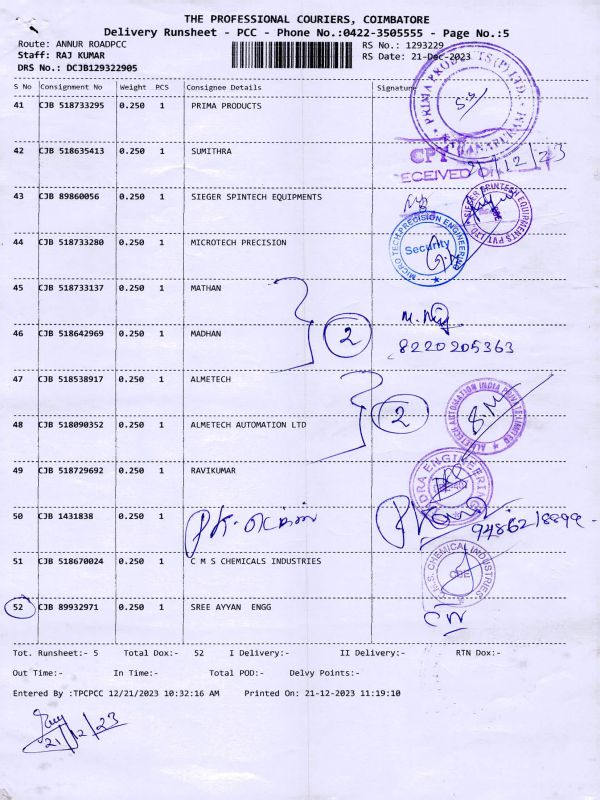 THE PROFESSIONAL COURIERS, COIMBATORE
Delivery Runsheet - PCC - Phone No.:0422-3505555 - Page No.:5
Route: ANNUR ROADPCC RS No.: 1293229
Staff: RAJ KUMAR RS Date: 21-Dec-2023
DRS No.: DCJB129322905
S No Consignment No Weight PCS Consignee Details Signature
41 CJB 518733295 0.250 1 PRIMA PRODUCTS
42 CJB 518635413 0.250 1 SUMITHRA
RECEIVED ON 21/12/23
43 CJB 89860056 0.250 1 SIEGER SPINTECH EQUIPMENTS
SIEGER SPINTECH EQUIPMENTS PVT LTD
44 CJB 518733280 0.250 1 MICROTECH PRECISION
MICRO TECH PRECISION ENGINEERING
Security
45 CJB 518733137 0.250 1 MATHAN
46 CJB 518642969 0.250 1 MADHAN 2
8220205363
47 CJB 518538917 0.250 1 ALMETECH
2
48 CJB 518090352 0.250 1 ALMETECH AUTOMATION LTD
ALMETECH AUTOMATION INDIA PRIVATE LIMITED
49 CJB 518729692 0.250 1 RAVIKUMAR
ENGINEERING
50 CJB 1431838 0.250 1
51 CJB 518670024 0.250 1 C M S CHEMICALS INDUSTRIES
C.M.S. CHEMICAL INDUSTRIES
CBE
52 CJB 89932971 0.250 1 SREE AYYAN ENGG
Tot. Runsheet:- 5 Total Dox:- 52 I Delivery:- II Delivery:- RTN Dox:-
Out Time:- In Time:- Total POD:- Delvy Points:-
Entered By :TPCPCC 12/21/2023 10:32:16 AM Printed On: 21-12-2023 11:19:10
21/12/23